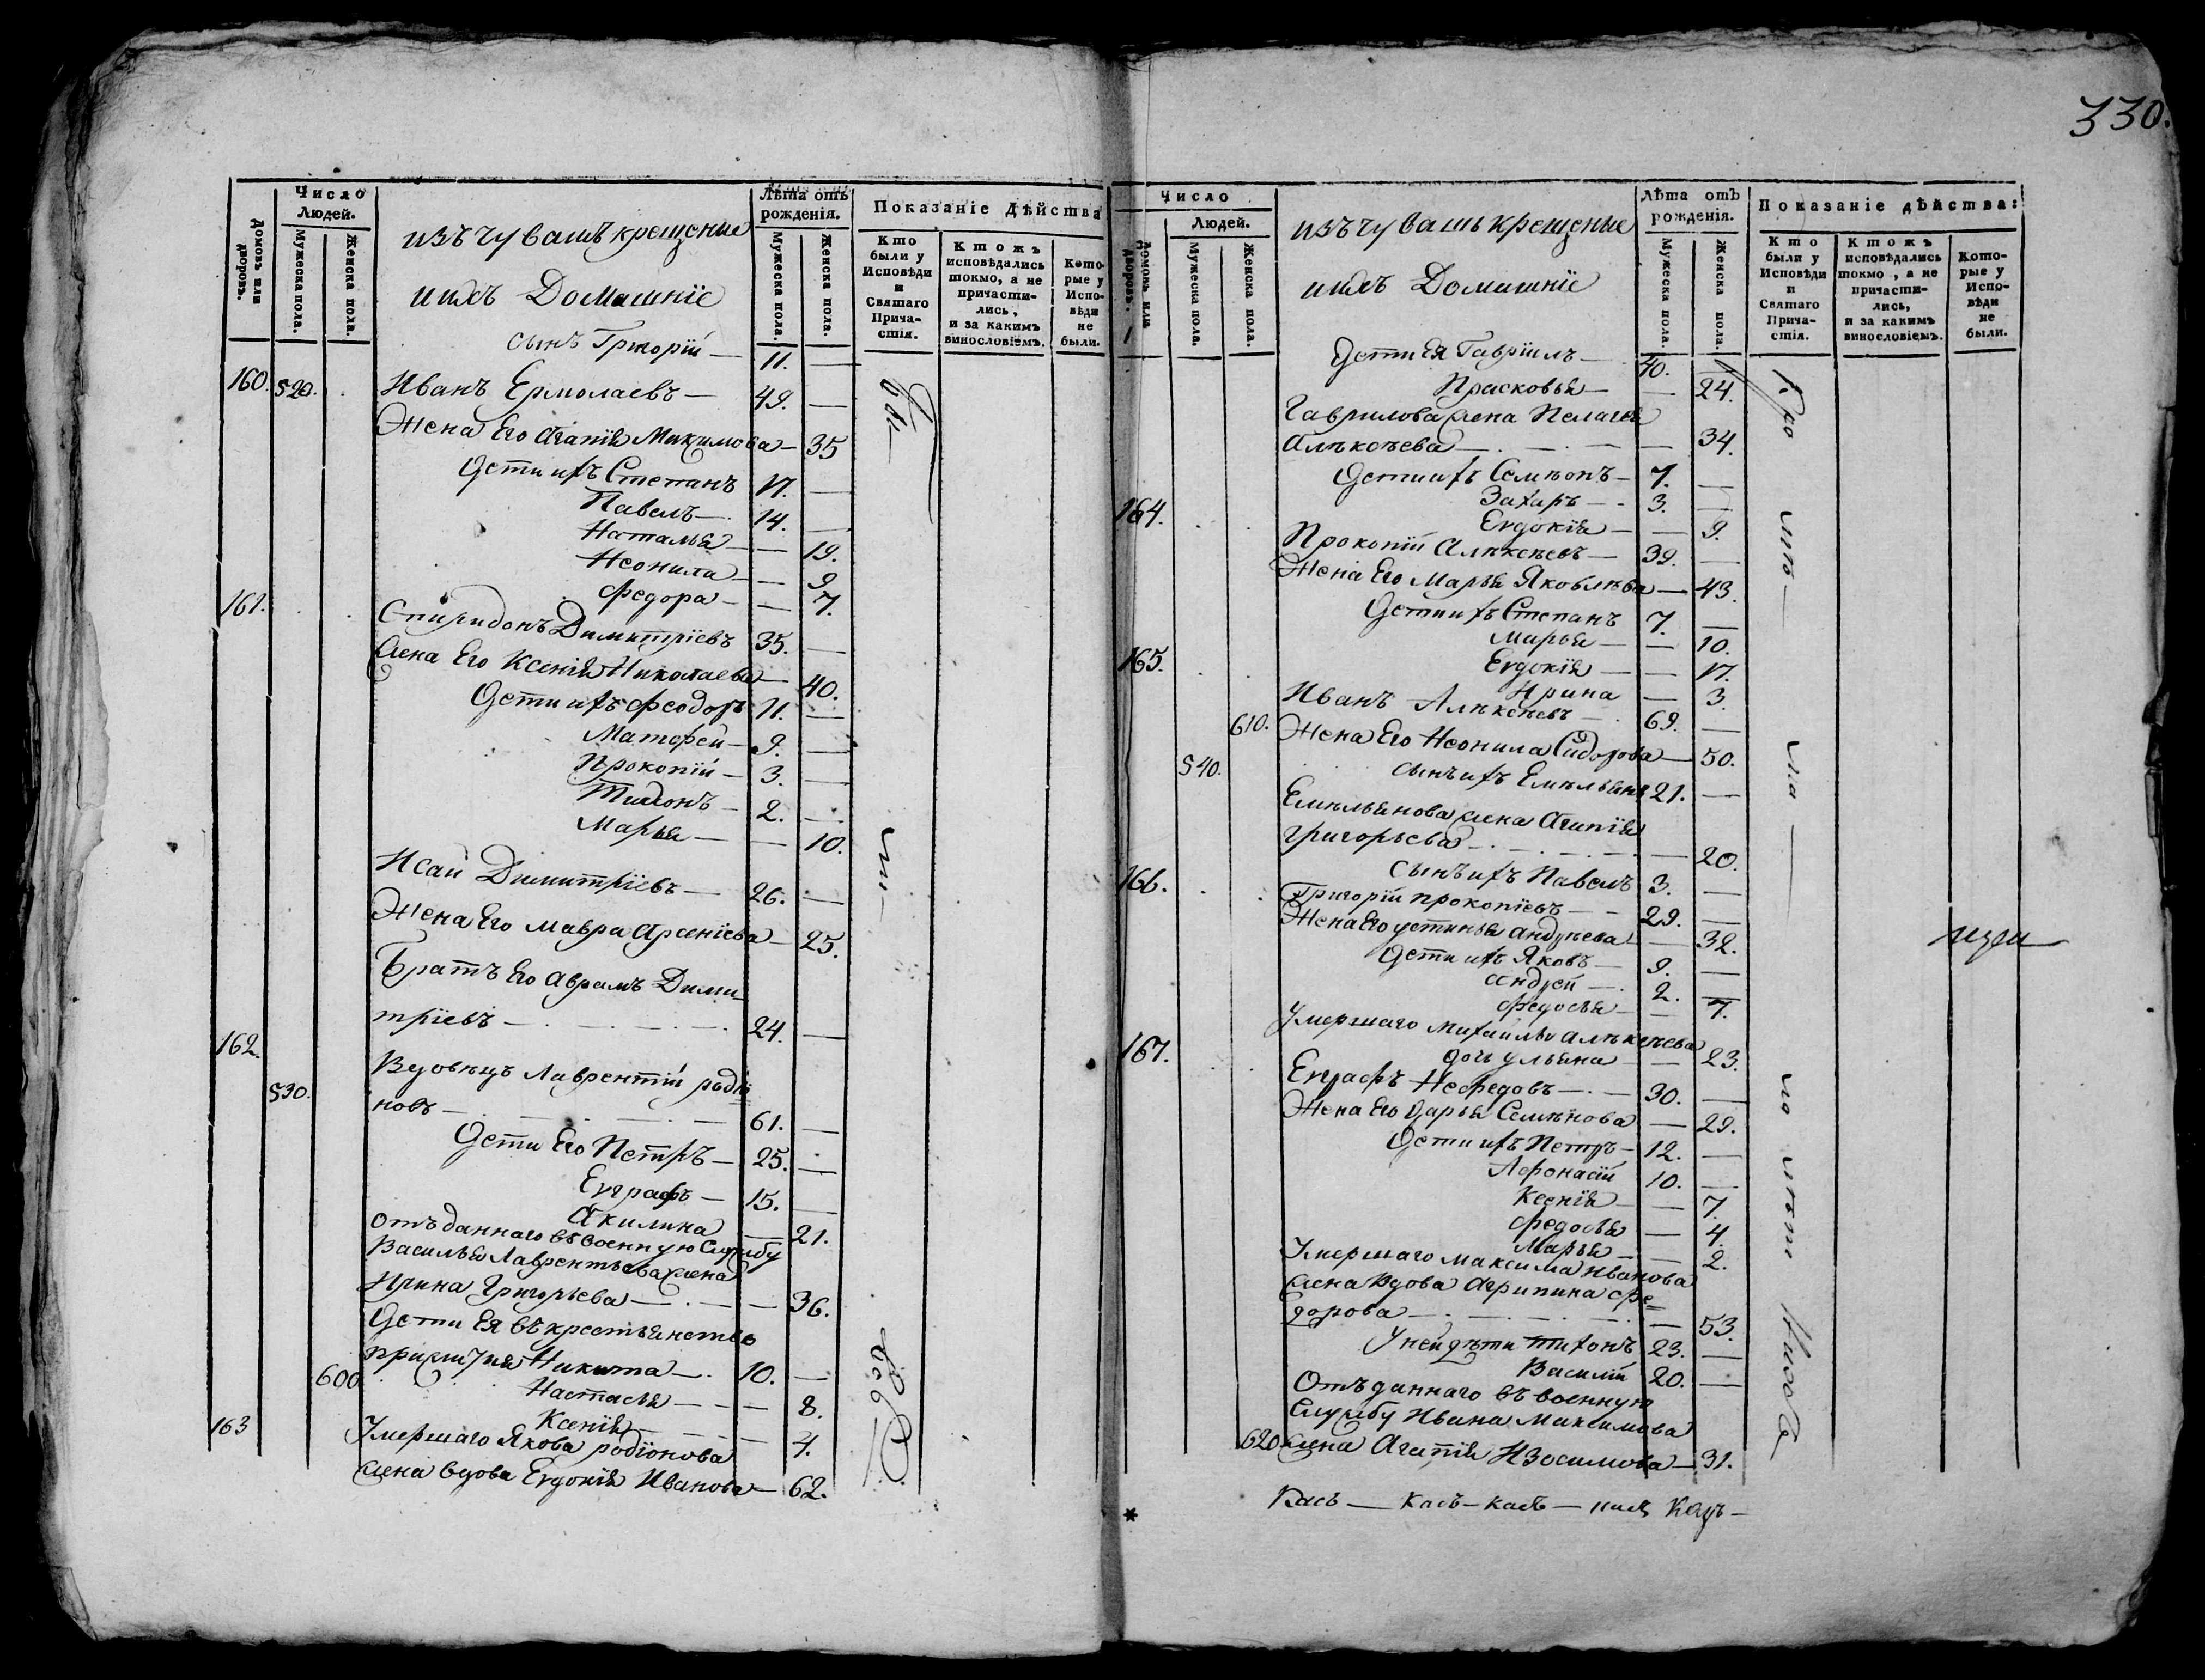 330.
Число
Людей.
Домовъ или дворовъ.
Мужеска пола.
Женска пола.
изъ чувашъ крещеные
и ихъ Домашніе
Лѣта отъ
рожденія.
Мужеска пола.
Женска пола.
Показаніе Дѣйства
Кто
были у
Исповѣди
и
Святаго
Прича-
стія.
Ктожъ
исповѣдались
токмо, а не
причасти-
лись,
и за какимъ
винословіемъ.
Кото-
рые у
Испо-
вѣди
не
были.
сынъ Григорій — 11. —
160. 520. Иванъ Ермолаевъ — 49. —
Жена Его Агапія Макимова — 35
Дети ихъ Степанъ 17. —
Павелъ — 14. —
Наталья — — 19.
Неонила — — 9
Федора — — 7.
161. Спиридонъ Димитріевъ 35. —
жена Его Ксенія Николаева — 40.
Дети ихъ Феодоръ 11. —
Матфей — 9. —
Прокопій — 3. —
Тихонъ — 2. —
Марья — — 10.
Исай Димитріевъ — 26. —
Жена Его Мавра Арсеніева — 25.
Братъ Его Аврамъ Дими
тріевъ — 24. —
162. Вдовецъ Лаврентій родіо
530. новъ — 61. —
Дети Его Петръ — 25. —
Евграфъ — 15. —
Акилина — 21.
отъданнаго въ военную службу
Василья Лаврентьева жена
Ирина Григорьева — — 36.
Дети Ея въ крестьянстве
Никита — 10. —
600 Настасья — — 8.
Ксенія — — 4.
163 Умершаго Якова родіонова
жена вдова Евдокія Иванова — 62.
Число
Людей.
Домовъ или дворовъ.
Мужеска пола.
Женска пола.
изъ чувашъ крещеные
и ихъ Домашніе
Лѣта отъ
рожденія.
Мужеска пола.
Женска пола.
Показаніе дѣйства:
Кто
были у
Исповѣди
и
Святаго
Прича-
стія.
Ктожъ
исповѣдались
токмо, а не
причасти-
лись,
и за какимъ
винословіемъ.
Кото-
рые у
Испо-
вѣди
не
были.
Дети Ея Гавріилъ — 40. —
Прасковья — — 24.
Гаврилова жена Пелагея
Алѣксѣева — — 34.
Дети ихъ Семѣонъ — 7. —
Захаръ — 3. —
Евдокія — — 9.
164. Прокопій Алѣксѣевъ — 39. —
Жена Его Марья Яковлѣва — 43.
Дети ихъ Степанъ 7. —
Марья — — 10.
Евдокія — — 17.
Ирина — 3.
165. Иванъ Алѣксѣевъ — 69. —
610. Жена Его Неонила Сидорова — 50.
540. сынъ ихъ Емѣльянъ 21. —
Емѣльянова жена Агапія
григорьева — — 20.
сынъ ихъ Павелъ 3. —
166. Григорій прокопіевъ — 29. —
Жена Его устинья андрѣева — 32.
Дети ихъ Яковъ — 9. —
андрей — 2. —
федосья — — 7.
Умершаго Михаила алѣксѣева
дочь ульяна — — 23.
167. Евграфъ Нефедовъ — 30. —
Жена Его Дарья Семѣнова — 29.
Дети ихъ Петръ — 12. —
Афонасій 10. —
Ксенія — — 7.
федосья — 4.
Марья — — 2.
Умершаго максима Иванова
жена вдова Агрипина фе=
дорова — — 53.
У ней дѣти тихонъ 23. —
Василій 20. —
Отъданнаго въ военную
службу Ивана Максимова
620 жена Агапія Изосимова — 31.